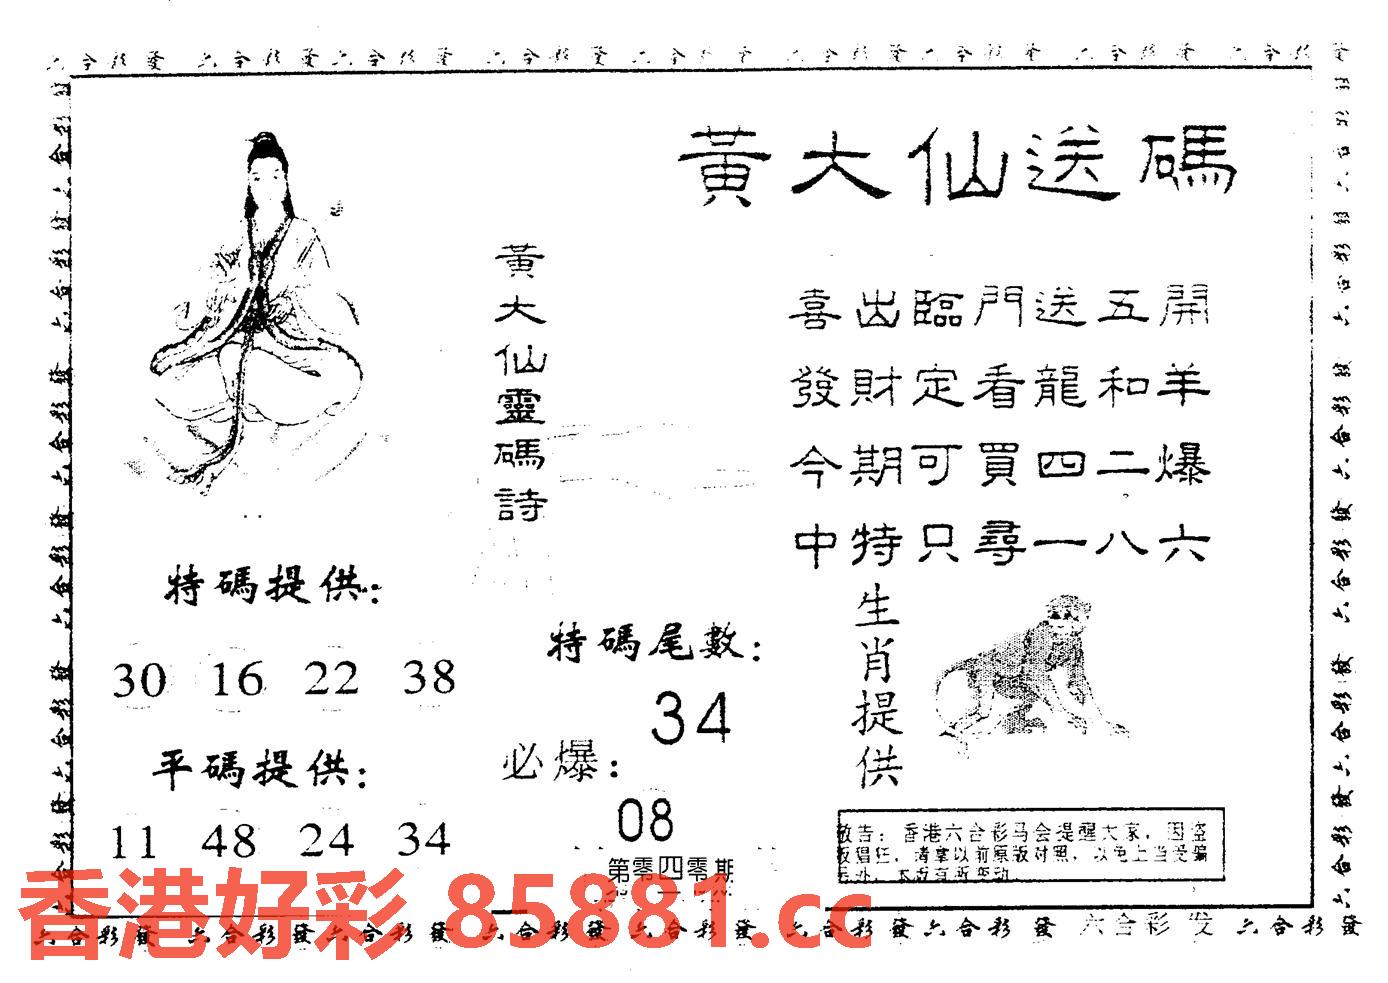 六合彩發 六合彩發 六合彩發 六合彩發 六合彩發 六合彩發 六合彩發 六合彩發
黃大仙送碼
黃大仙靈碼詩
喜出臨門送五開
發財定看龍和羊
今期可買四二爆
中特只尋一八六
特碼提供：
30 16 22 38
平碼提供：
11 48 24 34
特碼尾數：
34
必爆：
08
第零四零期
生肖提供
敬告：香港六合彩马会提醒大家，因盗
版猖狂，请拿以前原版对照，以免上当受骗
香港好彩 85881.cc
六合彩發 六合彩發 六合彩發 六合彩發 六合彩發 六合彩發 六合彩發 六合彩 发 六合彩發